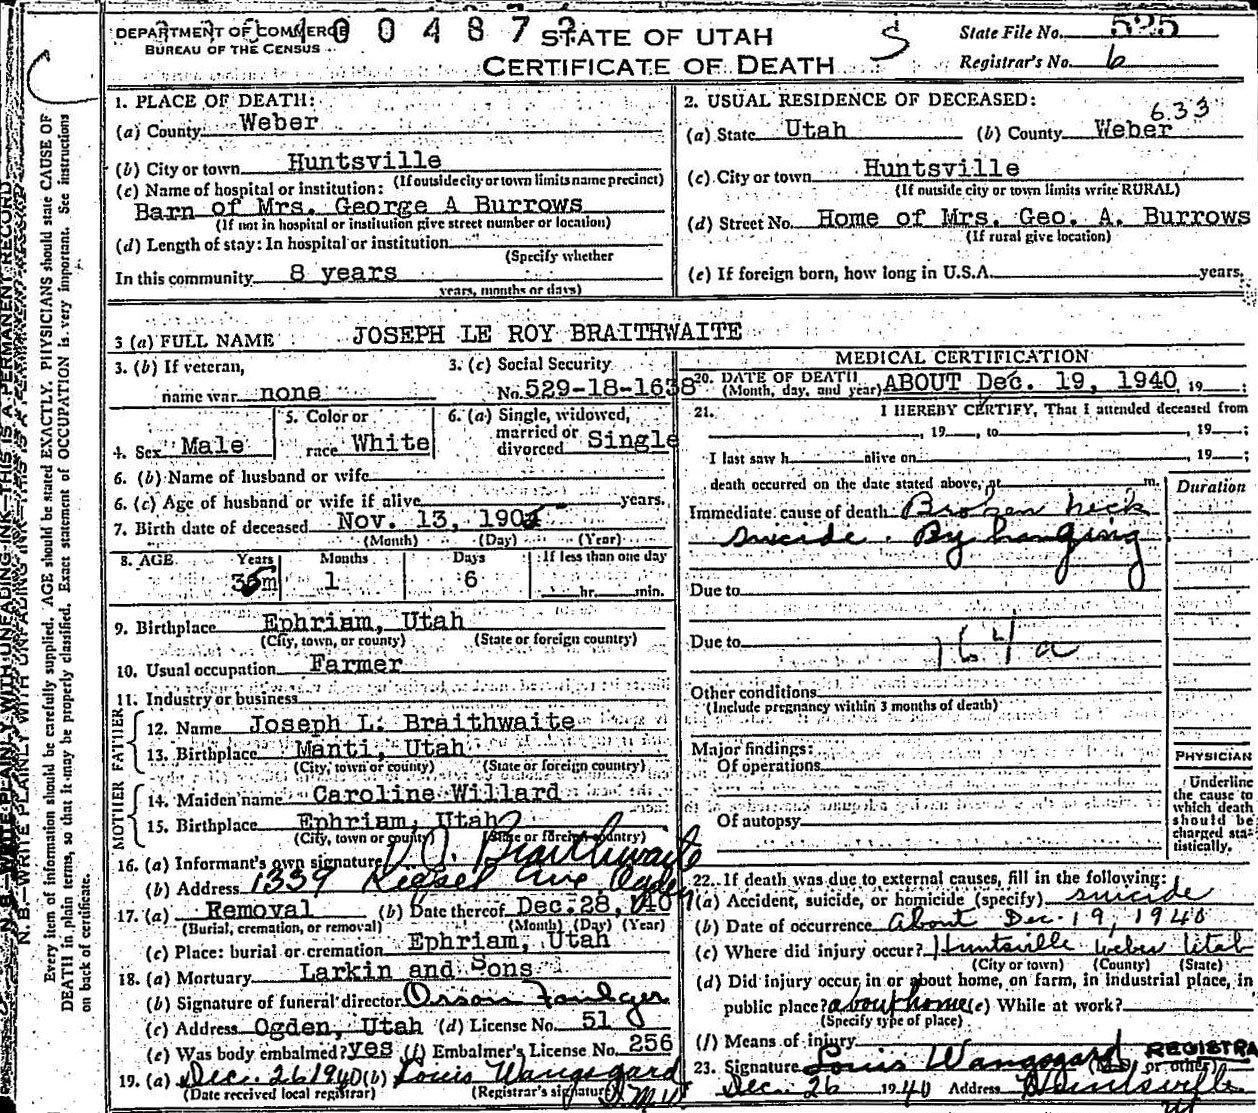 DEPARTMENT OF COMMERCE
BUREAU OF THE CENSUS
0 0 4 8 7 2
STATE OF UTAH
CERTIFICATE OF DEATH
S
State File No. 525
Registrar's No. 6
1. PLACE OF DEATH:
(a) County Weber
(b) City or town Huntsville
(If outside city or town limits name precinct)
(c) Name of hospital or institution:
Barn of Mrs. George A Burrows
(If not in hospital or institution give street number or location)
(d) Length of stay: In hospital or institution
(Specify whether
In this community 8 years
years, months or days)
2. USUAL RESIDENCE OF DECEASED:
633
(a) State Utah (b) County Weber
(c) City or town Huntsville
(If outside city or town limits write RURAL)
(d) Street No. Home of Mrs. Geo. A. Burrows
(If rural give location)
(e) If foreign born, how long in U.S.A. years.
3 (a) FULL NAME JOSEPH LE ROY BRAITHWAITE
3. (b) If veteran,
name war none
3. (c) Social Security
No. 529-18-1638
4. Sex Male
5. Color or
race White
6. (a) Single, widowed,
married or
divorced Single
6. (b) Name of husband or wife
6. (c) Age of husband or wife if alive years.
7. Birth date of deceased Nov. 13, 190
(Month) (Day) (Year)
8. AGE Years Months Days If less than one day
1 6 hr. min.
9. Birthplace Ephriam, Utah
(City, town, or county) (State or foreign country)
10. Usual occupation Farmer
11. Industry or business
FATHER
12. Name Joseph L. Braithwaite
13. Birthplace Manti, Utah
(City, town or county) (State or foreign country)
MOTHER
14. Maiden name Caroline Willard
15. Birthplace Ephriam, Utah
(City, town or county) (State or foreign country)
16. (a) Informant's own signature Braithwaite
(b) Address 1339 Kiesel Ave Ogden
17. (a) Removal (b) Date thereof Dec. 28, 1940
(Burial, cremation, or removal) (Month) (Day) (Year)
(c) Place: burial or cremation Ephriam, Utah
18. (a) Mortuary Larkin and Sons
(b) Signature of funeral director Orson Foulger
(c) Address Ogden, Utah (d) License No. 51
(e) Was body embalmed? yes (f) Embalmer's License No. 256
19. (a) Dec. 26 1940 (b) Louis Wangsgard
(Date received local registrar) (Registrar's signature)
MEDICAL CERTIFICATION
20. DATE OF DEATH
(Month, day, and year) ABOUT Dec. 19, 1940, 19 ;
21. I HEREBY CERTIFY, That I attended deceased from
, 19 , to , 19 ;
I last saw h alive on , 19 ;
death occurred on the date stated above, at m.
Duration
Immediate cause of death Broken neck
suicide. By hanging
Due to
Due to
164a
Other conditions
(Include pregnancy within 3 months of death)
Major findings:
Of operations
Of autopsy
PHYSICIAN
Underline
the cause to
which death
should be
charged sta-
tistically.
22. If death was due to external causes, fill in the following:
(a) Accident, suicide, or homicide (specify) suicide
(b) Date of occurrence About Dec. 19, 1940
(c) Where did injury occur? Huntsville Weber Utah
(City or town) (County) (State)
(d) Did injury occur in or about home, on farm, in industrial place, in
public place? about home (e) While at work?
(Specify type of place)
(f) Means of injury
23. Signature Louis Wangsgard REGISTRA
(M.D. or other)
Dec. 26 1940 Address Huntsville
N. B.—WRITE PLAINLY WITH UNFADING INK—THIS IS A PERMANENT RECORD
Every item of information should be carefully supplied. AGE should be stated EXACTLY. PHYSICIANS should state CAUSE OF
DEATH in plain terms, so that it may be properly classified. Exact statement of OCCUPATION is very important. See instructions
on back of certificate.